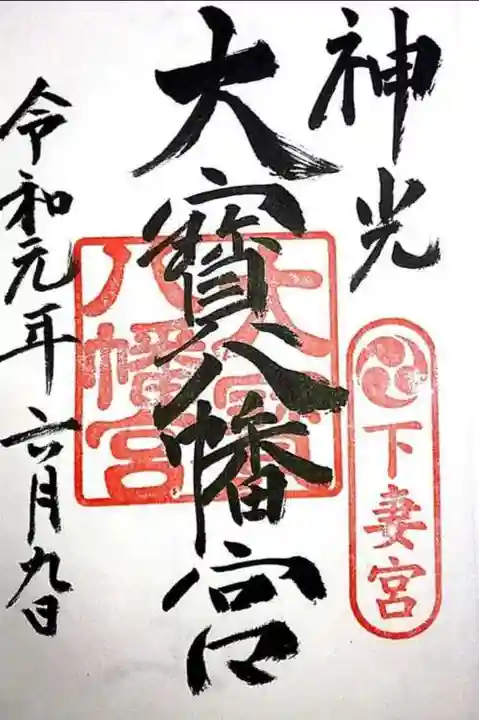 神光
下妻宮
大寳八幡宮
大寳
八幡宮
令和元年六月九日